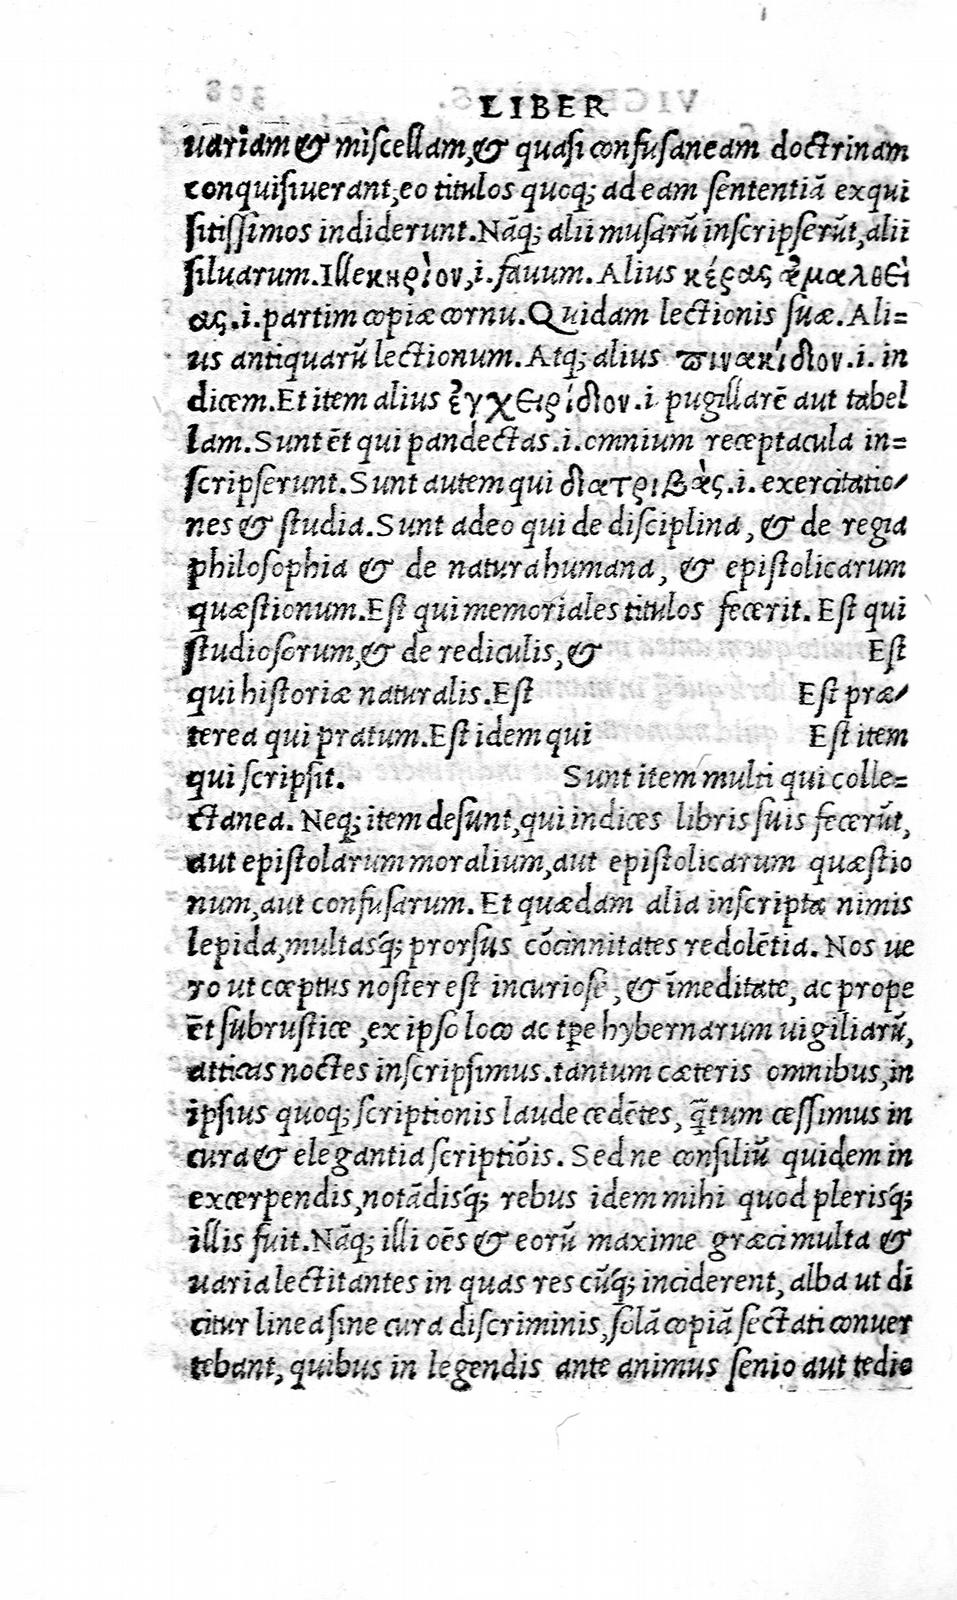 LIBER
uariam & miscellam, & quasi confusaneam doctrinam
conquisiuerant, eo titulos quoq; ad eam sententiã exqui
sitissimos indiderunt. Nãq; alii musarũ inscripserũt, alii
siluarum. Ille κηρίον, .i. fauum. Alius κέρας ἀμαλθεί
ας .i. partim copiæ cornu. Quidam lectionis suæ. Ali=
us antiquarũ lectionum. Atq; alius πινακίδιον .i. in
dicem. Et item alius ἐγχειρίδιον .i pugillarẽ aut tabel
lam. Sunt ẽt qui pandectas .i. omnium receptacula in=
scripserunt. Sunt autem qui διατριβὰς .i. exercitatio/
nes & studia. Sunt adeo qui de disciplina, & de regia
philosophia & de natura humana, & epistolicarum
quæstionum. Est qui memoriales titulos fecerit. Est qui
studiosorum, & de rediculis, & Est
qui historiæ naturalis. Est Est præ/
terea qui pratum. Est idem qui Est item
qui scripsit. Sunt item multi qui colle=
ctanea. Neq; item desunt, qui indices libris suis fecerũt,
aut epistolarum moralium, aut epistolicarum quæstio
num, aut confusarum. Et quædam alia inscripta nimis
lepida, multasq́; prorsus cõcinnitates redolẽtia. Nos ue
ro ut cœptus noster est incuriose, & ĩmeditate, ac prope
ẽt subrustice, ex ipso loco ac tꝑe hybernarum uigiliarũ,
atticas noctes inscripsimus. tantum cæteris omnibus, in
ipsius quoq; scriptionis laude cedẽtes, q̃tum cessimus in
cura & elegantia scriptiõis. Sed ne consiliũ quidem in
excerpendis, notãdisq́; rebus idem mihi quod plerisq́;
illis fuit. Nãq; illi oẽs & eorũ maxime græci multa &
uaria lectitantes in quas res cũq́; inciderent, alba ut di
citur linea sine cura discriminis, solã copiã sectati conuer
tebant, quibus in legendis ante animus senio aut tedio